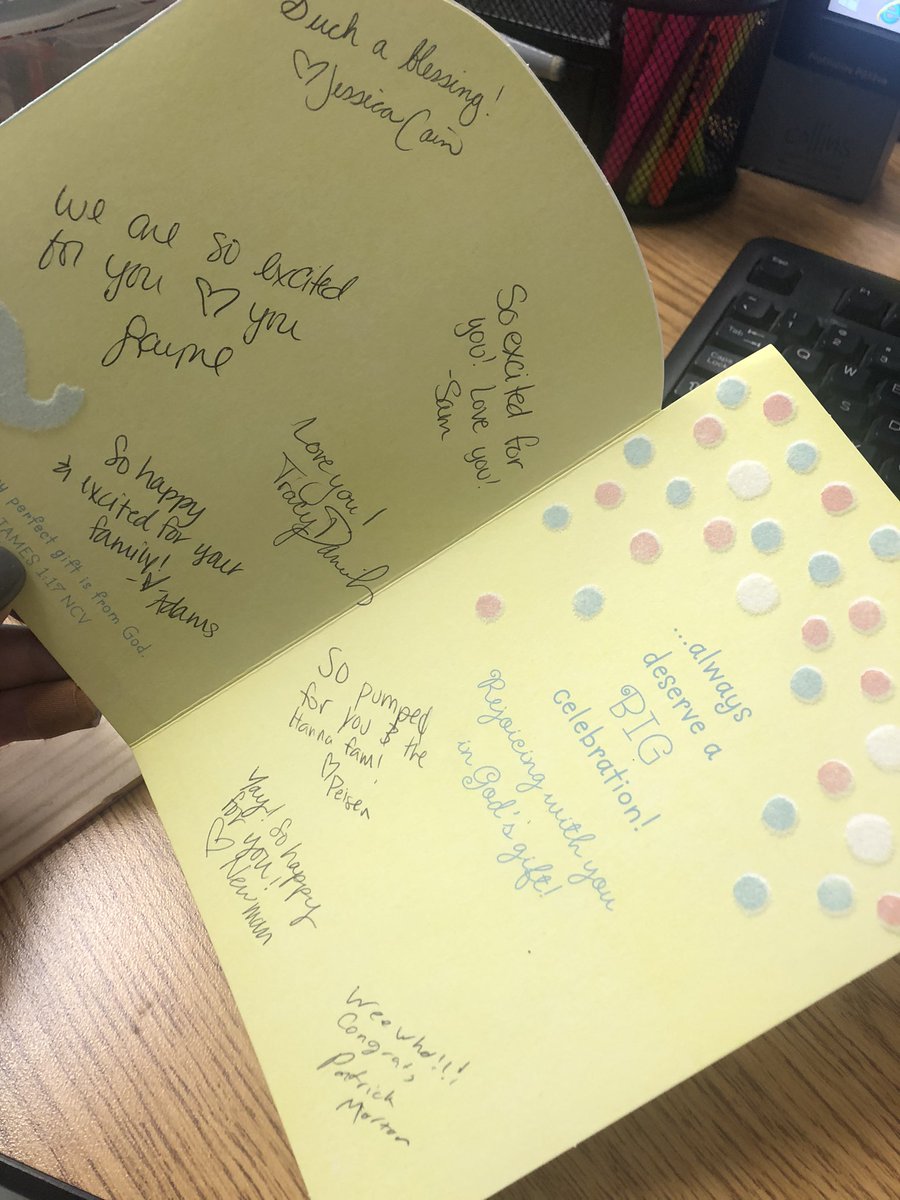 Such a blessing!
♡ Jessica Cain
We are so excited
for you ♡ you
So excited for
you! Love you!
-Sam
Love you!
Tracy
So happy
& excited for your
family!
-Adams
perfect gift is from God.
JAMES 1:17 NCV
So pumped
for you & the
Hanna fam!
♡
Yay! So happy
for you!
♡ Newman
...always
deserve a
BIG
celebration!
Rejoicing with you
in God's gift!
Weewho!!!
Congrats
Patrick
Morton
Esc
F1
1
2
Tab
Q
W
Caps
Lock
S